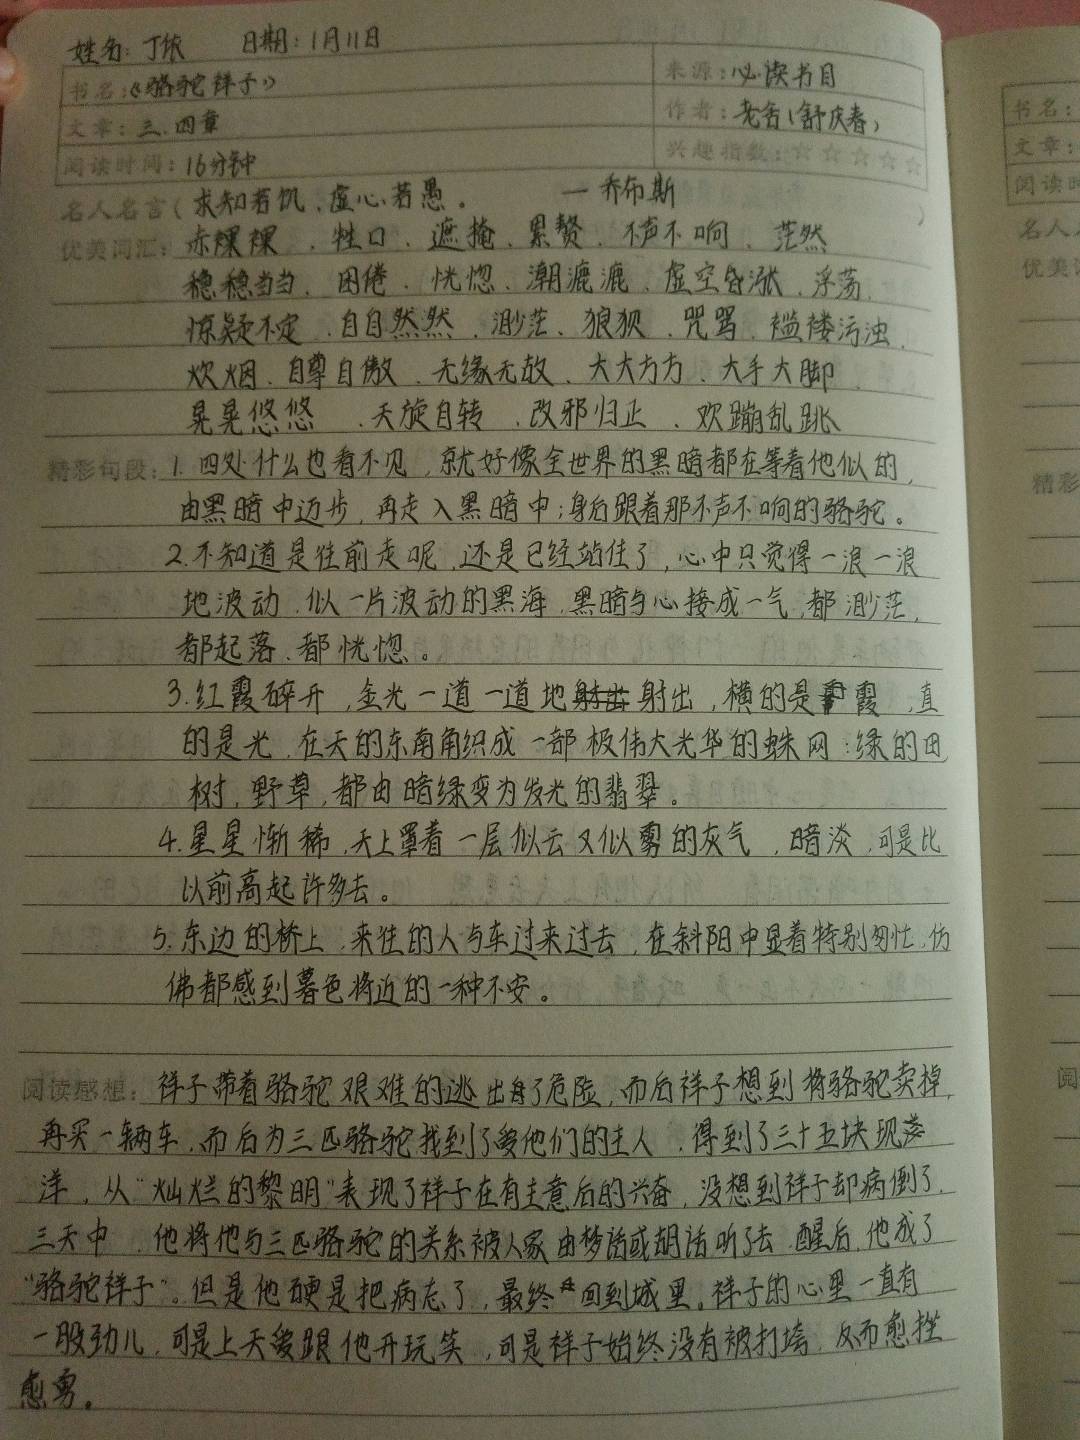 姓名: 丁依 日期: 1月11日
书名:《骆驼祥子》 来源: 必读书目
文章: 三、四章 作者: 老舍(舒庆春)
阅读时间: 16分钟 兴趣指数: ☆☆☆☆☆
名人名言( 求知若饥、虚心若愚。 —乔布斯 )
优美词汇: 赤裸裸、牲口、遮掩、累赘、不声不响、茫然
稳稳当当、困倦、恍惚、潮漉漉、虚空昏涨、浮荡、
惊疑不定、自自然然、渺茫、狼狈、咒骂、褴褛污浊、
炊烟、自尊自傲、无缘无故、大大方方、大手大脚、
晃晃悠悠、天旋自转、改邪归正、欢蹦乱跳
精彩句段: 1.四处什么也看不见,就好像全世界的黑暗都在等着他似的,
由黑暗中迈步,再走入黑暗中;身后跟着那不声不响的骆驼。
2.不知道是往前走呢,还是已经站住了,心中只觉得一浪一浪
地波动,似一片波动的黑海,黑暗与心接成一气,都渺茫,
都起落、都恍惚。
3.红霞碎开,金光一道一道地射出射出,横的是霞,直
的是光,在天的东南角织成一部极伟大光华的蛛网:绿的田,
树,野草,都由暗绿变为发光的翡翠。
4.星星惭稀,天上罩着一层似云又似雾的灰气,暗淡,可是比
以前高起许多去。
5.东边的桥上,来往的人与车过来过去,在斜阳中显着特别匆忙,仿
佛都感到暮色将近的一种不安。
阅读感想: 祥子带着骆驼艰难的逃出了危险,而后祥子想到将骆驼卖掉,
再买一辆车,而后为三匹骆驼找到了他们的主人,得到了三十五块现
洋,从"灿烂的黎明"表现了祥子在有主意后的兴奋,没想到祥子却病倒了,
三天中,他将他与三匹骆驼的关系被人家由梦话或胡话听了去,醒后,他成了
"骆驼祥子"。但是他硬是把病忘了,最终回到城里。祥子的心里一直有
一股劲儿,可是上天爱跟他开玩笑,可是祥子始终没有被打垮,反而愈挫
愈勇。
书名:
文章:
阅读时
名人
优美词
精彩
阅